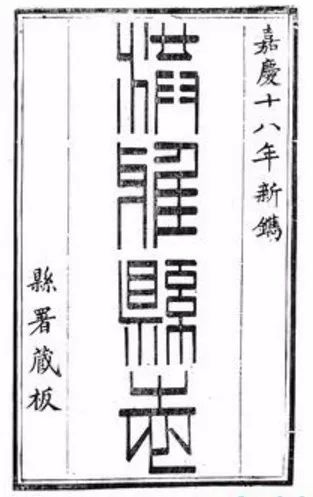 嘉慶十八年新鐫
洪雅縣志
縣署蔵板